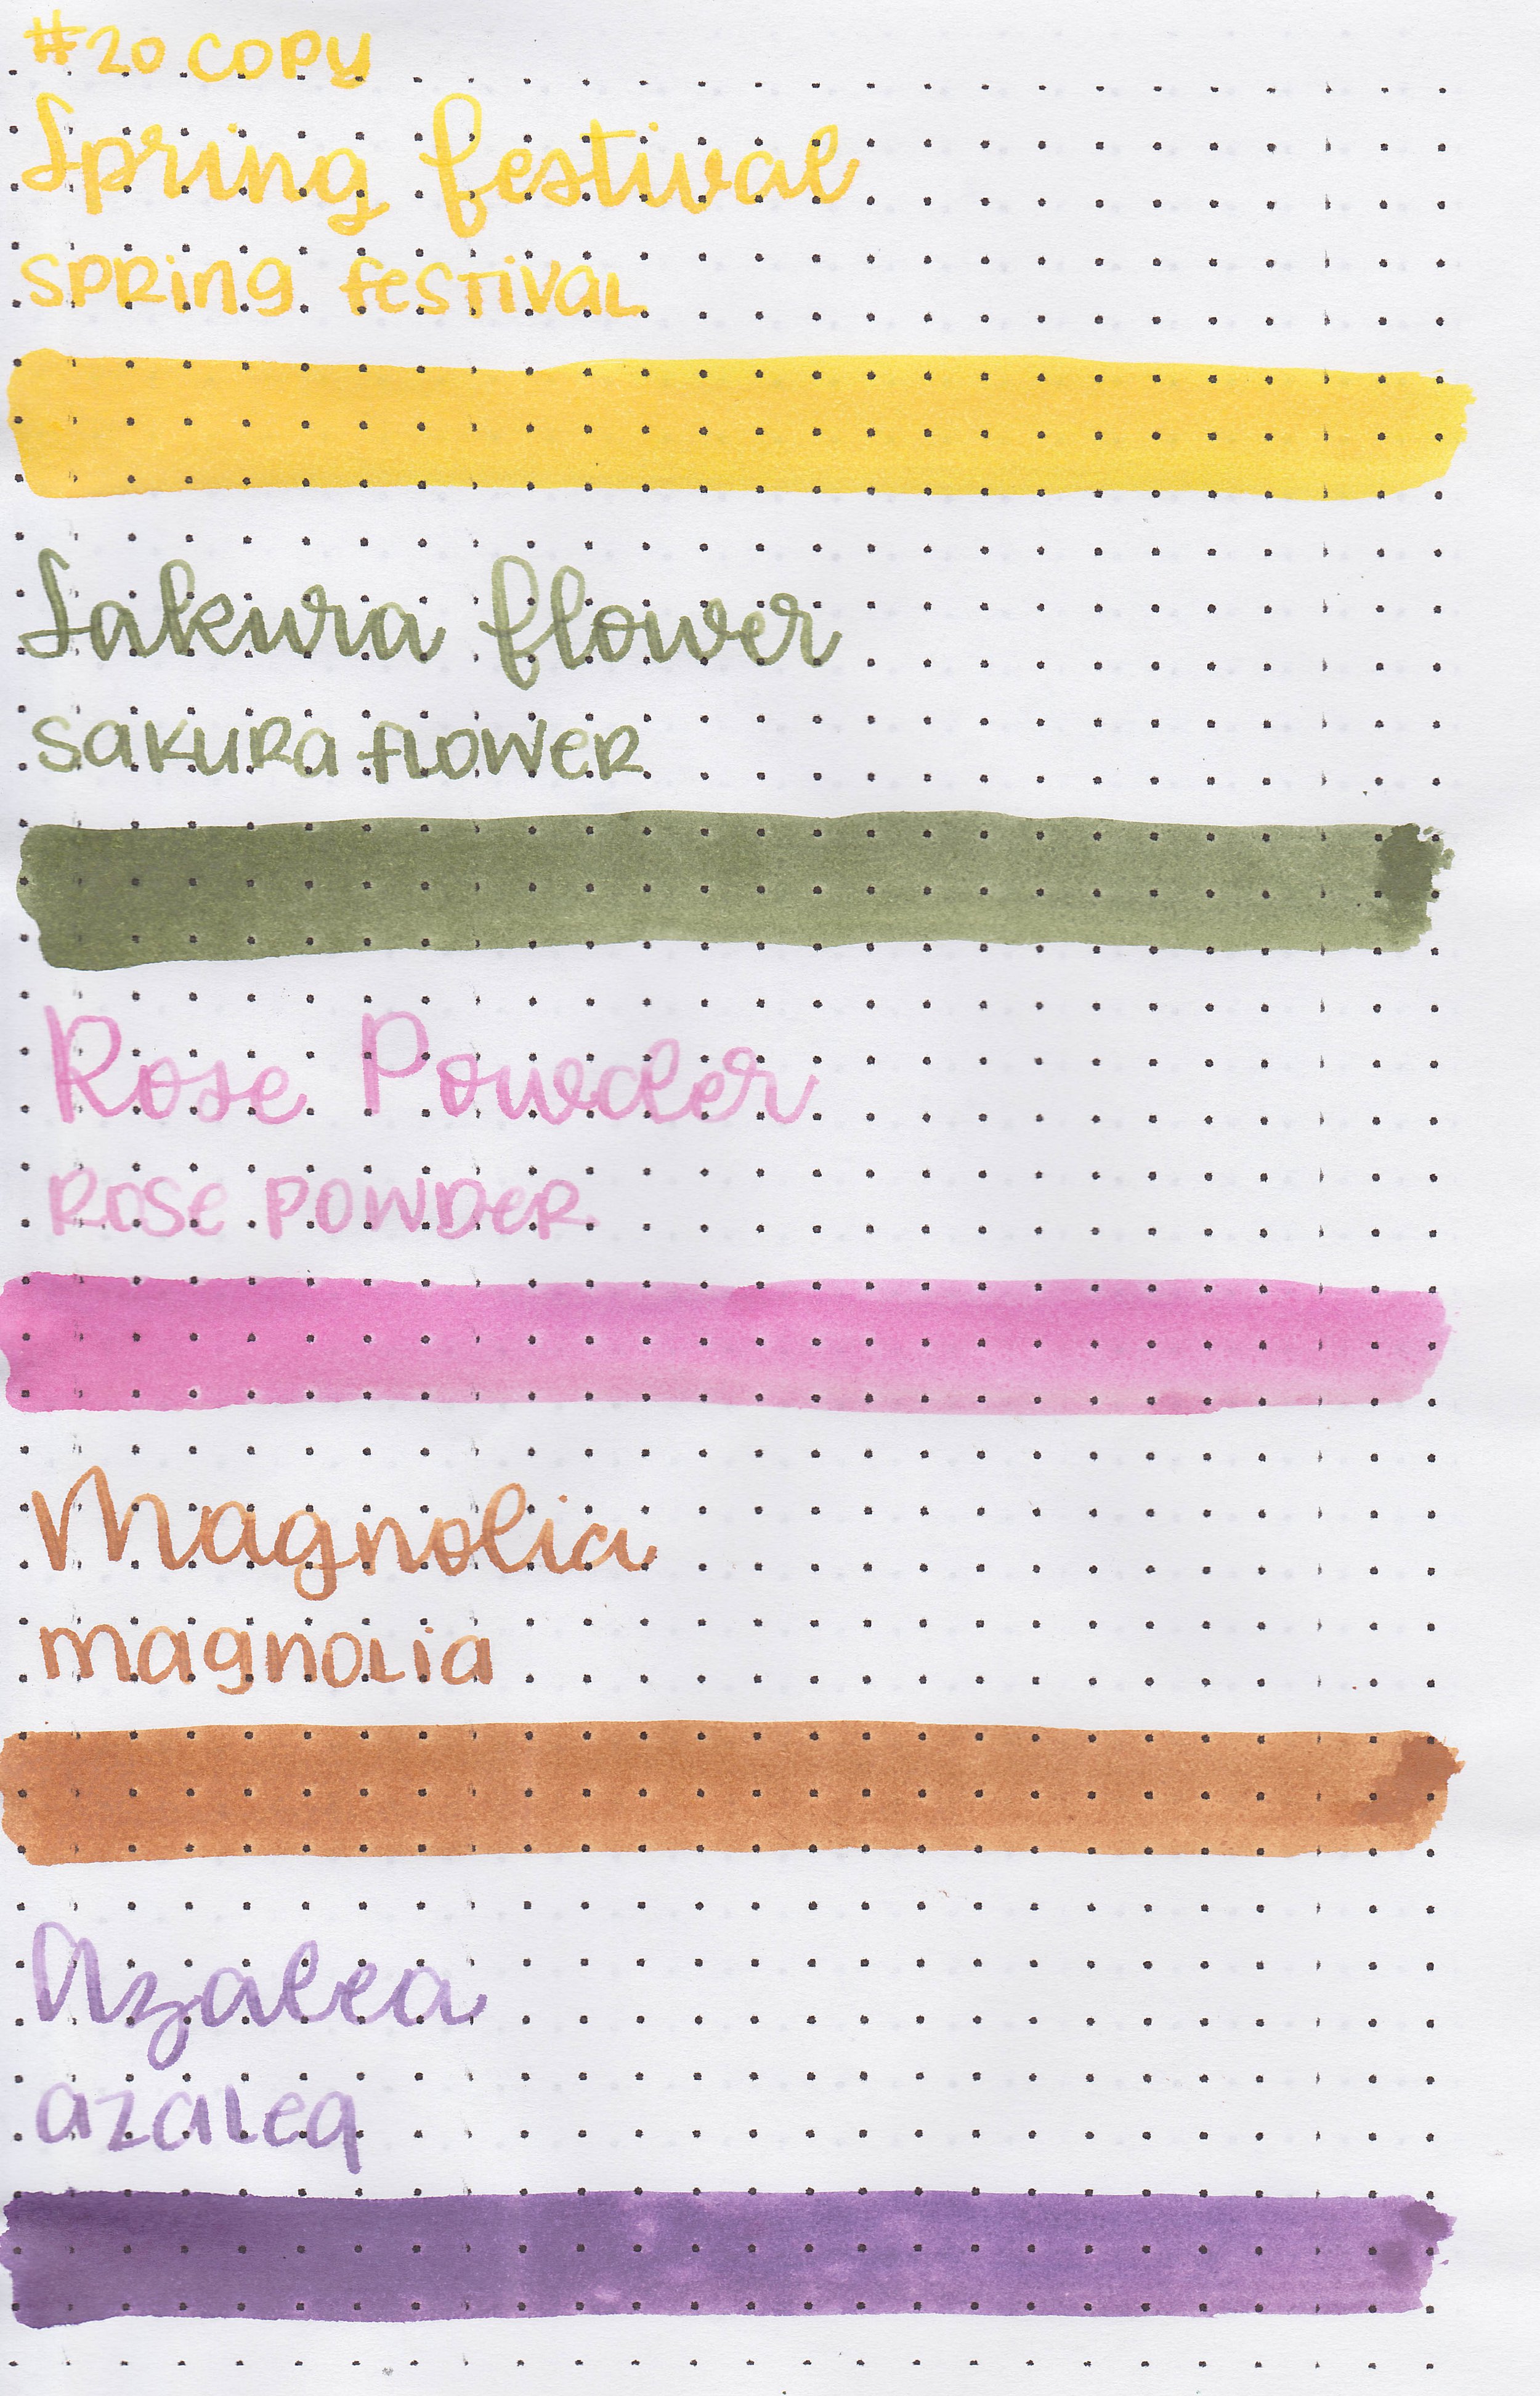 #20 copy
Spring festival
Spring festival
Sakura flower
Sakura flower
Rose Powder
Rose Powder
Magnolia
magnolia
Azalea
azalea